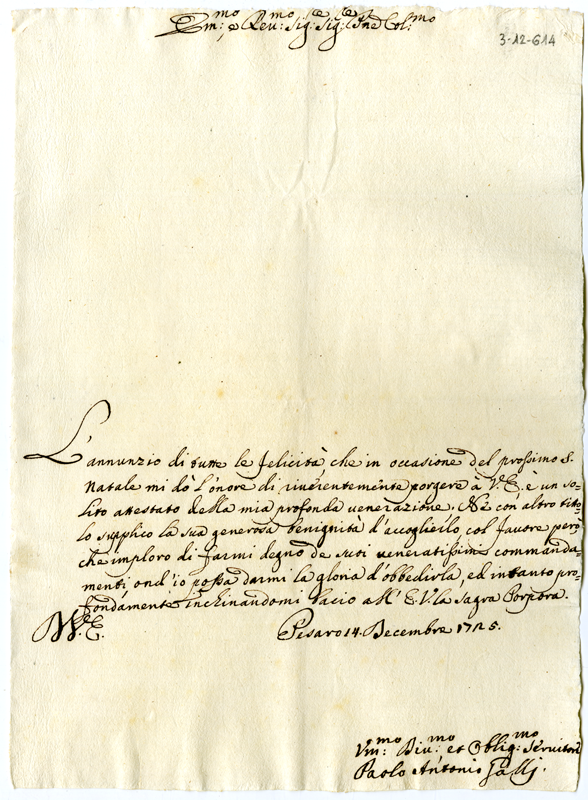 Em:mo e Rev:mo Sig:e Sig:e Pne Col:mo
3-12-614
L'annunzio di tutte le felicità, che in occasione del prossimo S.
Natale mi dò l'onore di riverentemente porgere à V.E. è un so-
lito attestato della mia profonda venerazione. Nè con altro tito-
lo supplico la sua generosa benignità d'accoglierlo col favore però
che imploro di farmi degno de suoi veneratissimi commanda-
menti, ond'io possa darmi la gloria d'obbedirla, ed intanto pro-
fondamente inchinandomi bacio all'E.V. la Sagra Porpora.
Di V.E.
Pesaro 14. Decembre 1725.
Um:mo Div:mo et Oblig:mo Servitore
Paolo Antonio Galli.